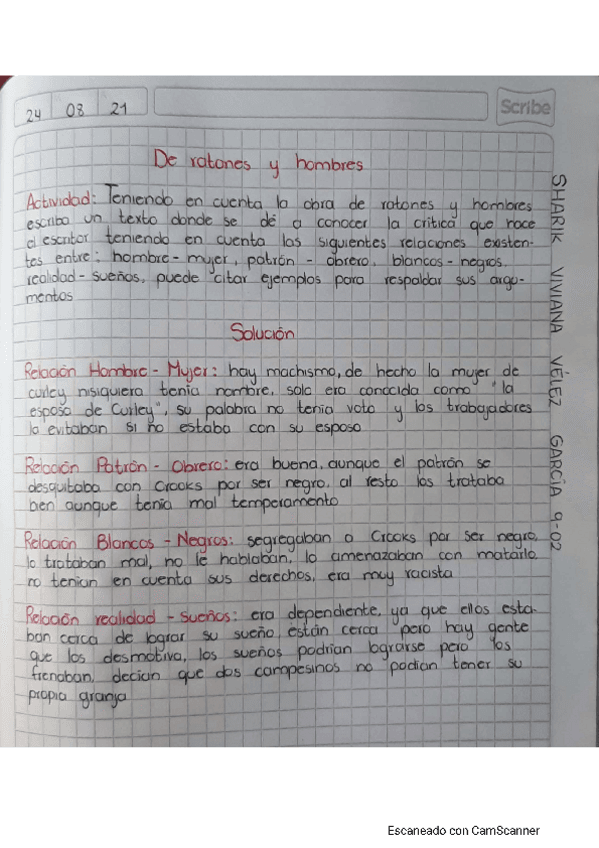 24 08 21
Scribe
De ratones y hombres
Actividad: Teniendo en cuenta la obra de ratones y hombres
escriba un texto donde se dé a conocer la critica que hace
el escritor teniendo en cuenta las siguientes relaciones existen-
tes entre: hombre - mujer, patrón - obrero, blancos - negros,
realidad - sueños, puede citar ejemplos para respaldar sus argu-
mentos
Solución
Relación Hombre - Mujer: hay machismo, de hecho la mujer de
curley nisiquiera tenía nombre, solo era conocida como "la
esposa de Curley", su palabra no tenía voto y los trabajadores
la evitaban si no estaba con su esposo
Relación Patrón - Obrero: era buena, aunque el patrón se
desquitaba con Crooks por ser negro, al resto los trataba
bien aunque tenía mal temperamento
Relación Blancos - Negros: segregaban a Crooks por ser negro,
lo trataban mal, no le hablaban, lo amenazaban con matarlo,
no tenían en cuenta sus derechos, era muy racista
Relación realidad - sueños: era dependiente, ya que ellos esta-
ban cerca de lograr su sueño están cerca pero hay gente
que los desmotiva, los sueños podrían lograrse pero los
frenaban, decían que dos campesinos no podían tener su
propia granja
SHARIK VIVIANA VÉLEZ GARCÍA 9-02
Escaneado con CamScanner